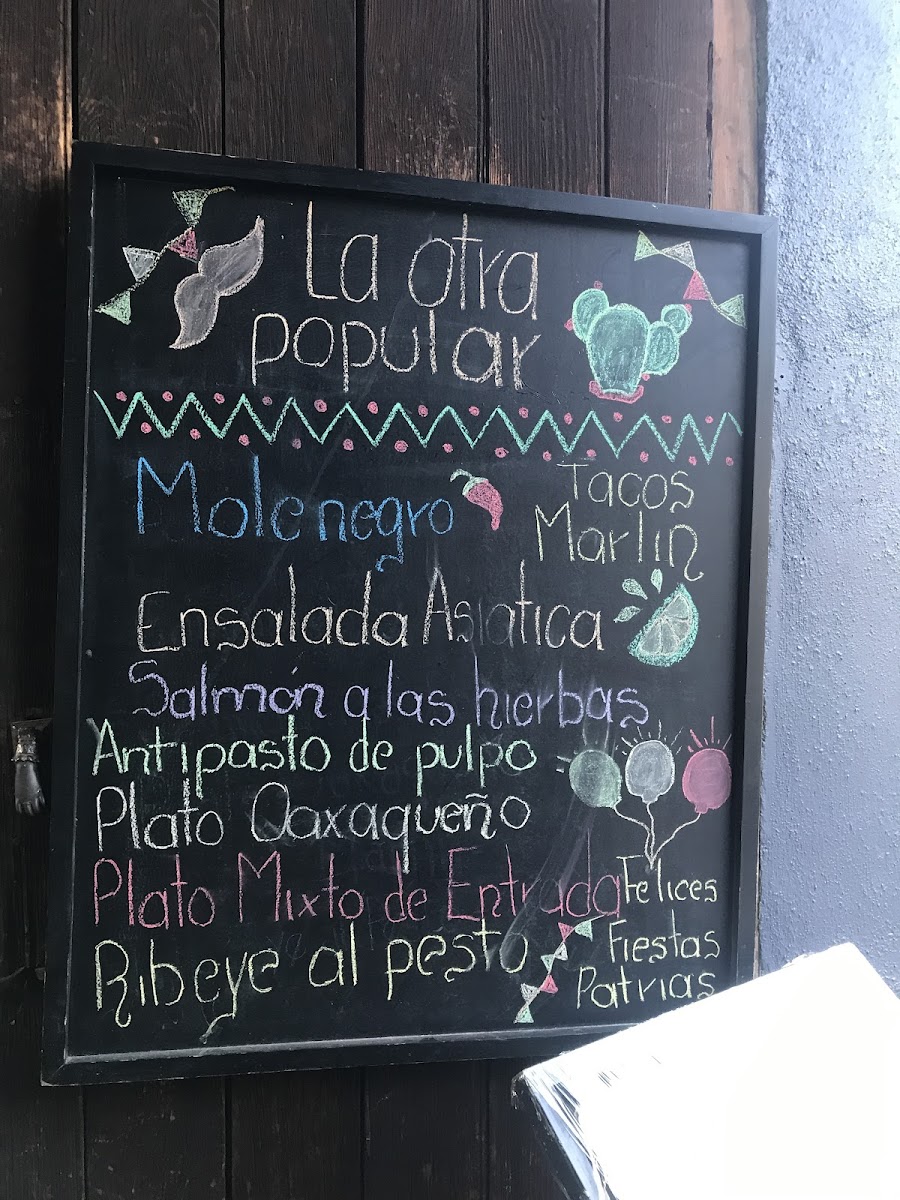 La otra
popular
Mole negro
Tacos
Marlin
Ensalada Asiatica
Salmón a las hierbas
Antipasto de pulpo
Plato Oaxaqueño
Plato Mixto de Entrada
Ribeye al pesto
Felices
Fiestas
Patrias